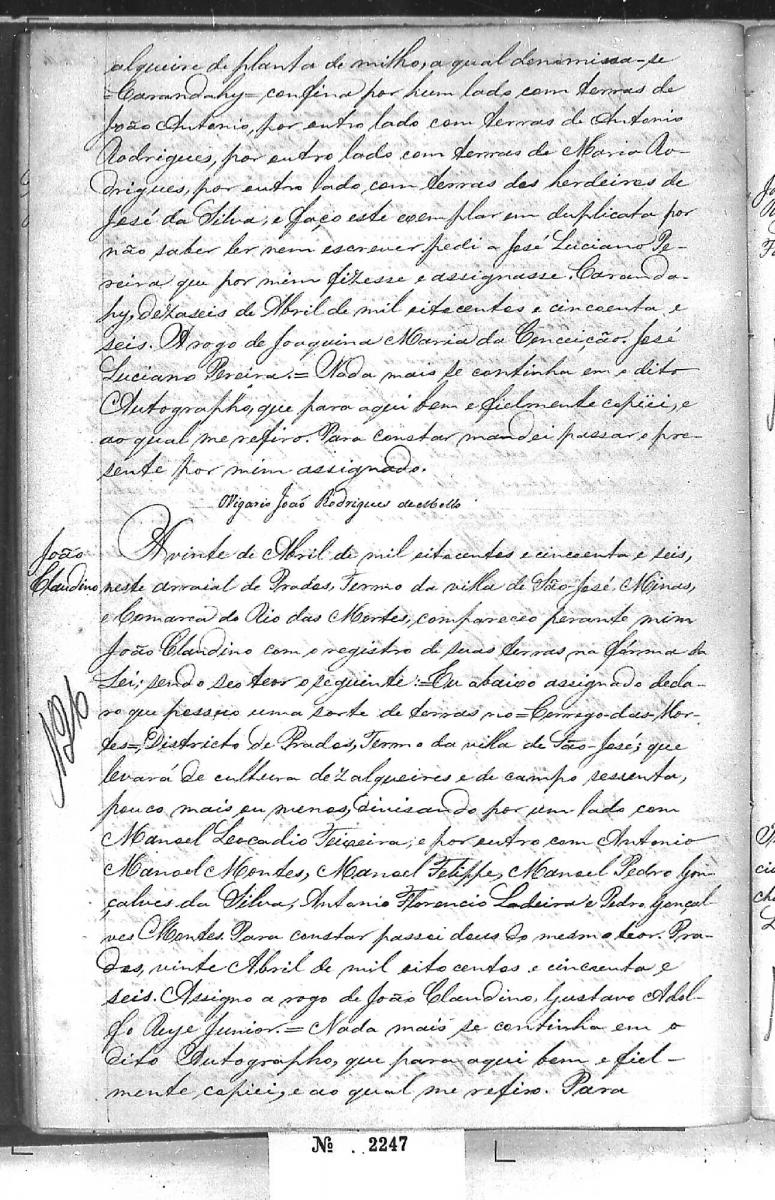 alqueire de planta de milho, a qual denomina-se
=Carandahy= confina por hum lado com terras de
João Antonio, por outro lado com terras de Antonio
Rodrigues, por outro lado com terras de Maria Ro-
drigues, por outro lado, com terras dos herdeiros de
José da Silva; e faço este exemplar em duplicata por
não saber ler nem escrever pedi a José Luciano Pe-
reira que por mim fizesse e assignasse. Caranda-
hy, dezaseis de Abril de mil oitocentos e cincoenta e
seis. A rogo de Joaquina Maria da Conceição. José
Luciano Pereira.= Nada mais se continha em o dito
Autographo, que para aqui bem e fielmente copiei, e
ao qual me refiro. Para constar mandei passar o pre-
sente por mim assignado.
O Vigario João Rodrigues de Mello
João
Claudino
126
A vinte de Abril de mil oitocentos e cincoenta e seis,
neste arraial de Prados, Termo da villa de São-José, Minas,
e Comarca do Rio das Mortes, compareceo perante mim
João Claudino com o registro de suas terras na fórma da
Lei; sendo seo teor o seguinte:=Eu abaixo assignado decla-
ro que possuo uma sorte de terras no=Corrego-das-Mor-
tes=, Districto de Prados, Termo da villa de São-José; que
levará de cultura dez alqueires e de campo sessenta,
pouco mais ou menos, divisando por um lado com
Manoel Leocadio Teixeira; e por outro com Antonio
Manoel Montes, Manoel Felippe, Manoel Pedro Gon-
çalves da Silva, Antonio Florencio Ladeira e Pedro Gonçal-
ves Montes. Para constar passei dous do mesmo teor. Pra-
dos, vinte Abril de mil oitocentos e cincoenta e
seis. Assigno a rogo de João Claudino, Gustavo Adol-
fo Reye Junior.= Nada mais se continha em o
dito Autographo, que para aqui bem e fiel-
mente copiei, e ao qual me refiro. Para
Nº 2247